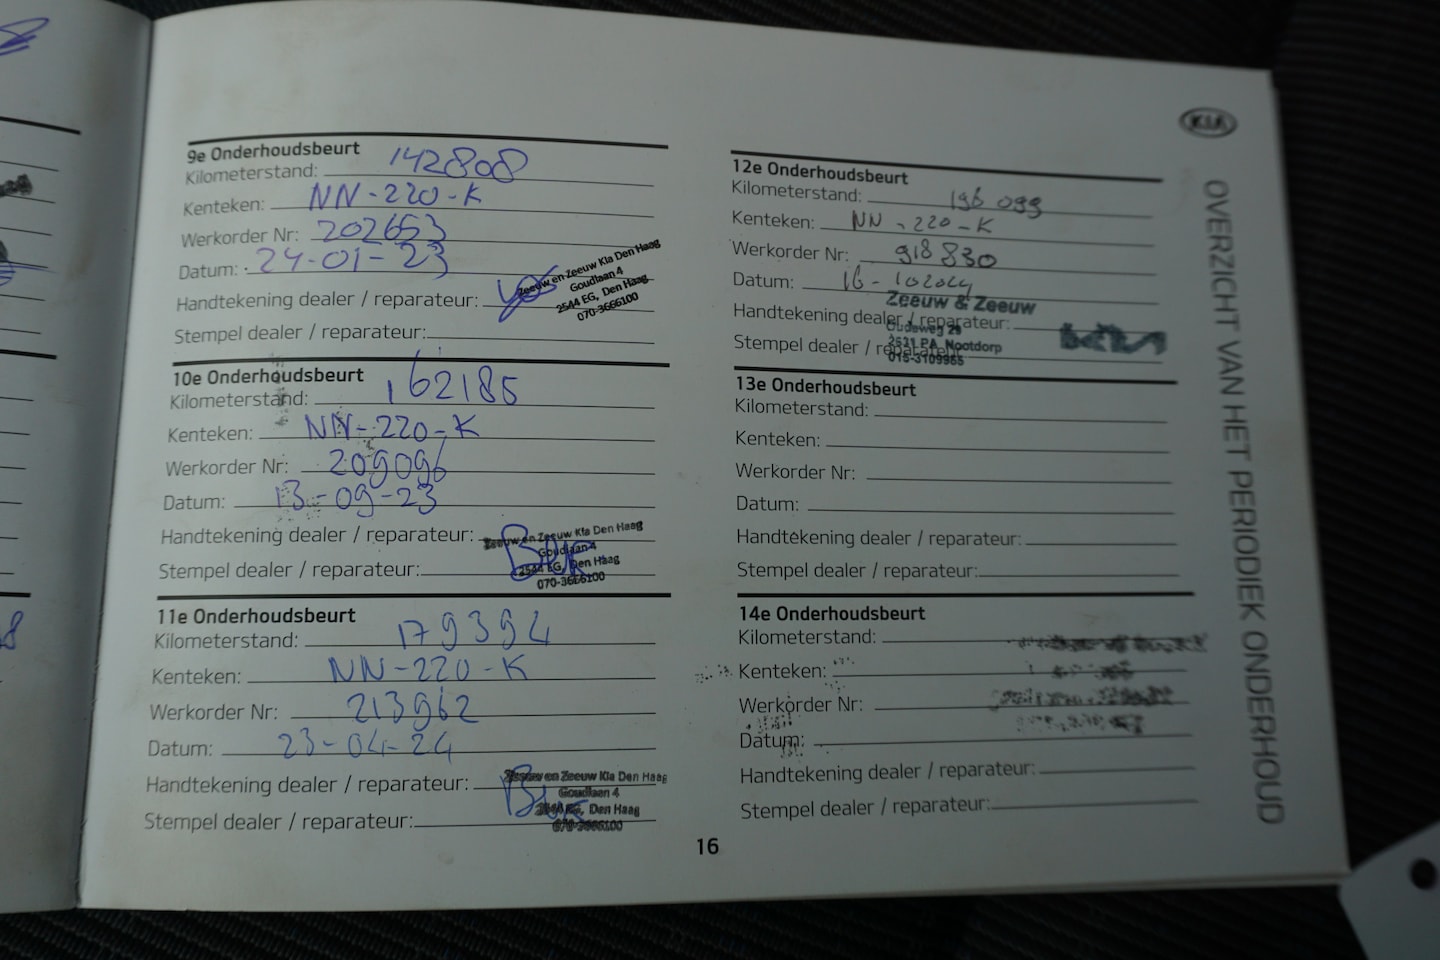 9e Onderhoudsbeurt
Kilometerstand: 142808
Kenteken: NN-220-K
Werkorder Nr: 202653
Datum: 24-01-23
Handtekening dealer / reparateur:
Zeeuw en Zeeuw Kia Den Haag
Goudlaan 4
2544 EG, Den Haag
070-3666100
Stempel dealer / reparateur:
10e Onderhoudsbeurt
Kilometerstand: 162185
Kenteken: NN-220-K
Werkorder Nr: 209096
Datum: 13-09-23
Handtekening dealer / reparateur:
Zeeuw en Zeeuw Kia Den Haag
Goudlaan 4
2544 EG, Den Haag
070-3666100
Stempel dealer / reparateur:
11e Onderhoudsbeurt
Kilometerstand: 179394
Kenteken: NN-220-K
Werkorder Nr: 213962
Datum: 23-04-24
Handtekening dealer / reparateur:
Zeeuw en Zeeuw Kia Den Haag
Goudlaan 4
2544 EG, Den Haag
070-3666100
Stempel dealer / reparateur:
12e Onderhoudsbeurt
Kilometerstand: 196 099
Kenteken: NN-220-K
Werkorder Nr: 918830
Datum: 16-102024
Zeeuw & Zeeuw
Handtekening dealer / reparateur:
Oudeweg 29
2631 PA, Nootdorp
Stempel dealer / reparateur:
015-3109965
13e Onderhoudsbeurt
Kilometerstand:
Kenteken:
Werkorder Nr:
Datum:
Handtekening dealer / reparateur:
Stempel dealer / reparateur:
14e Onderhoudsbeurt
Kilometerstand:
Kenteken:
Werkorder Nr:
Datum:
Handtekening dealer / reparateur:
Stempel dealer / reparateur:
16
KIA
OVERZICHT VAN HET PERIODIEK ONDERHOUD